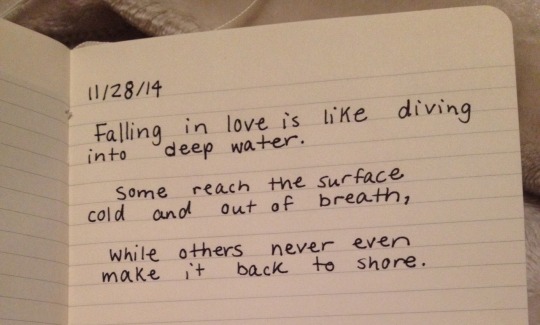 11/28/14
Falling in love is like diving
into deep water.
Some reach the surface
cold and out of breath,
while others never even
make it back to shore.